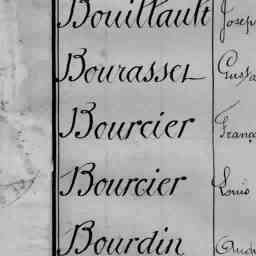 Bouillault Josep
Bourasset Gusta
Bourcier Franço
Bourcier Louis
Bourdin